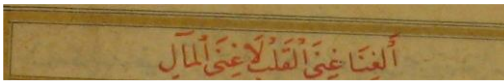 أَلغِنَا غِنَى ٱلْقَلْبِ لَا غِنَى ٱلْمَالِ